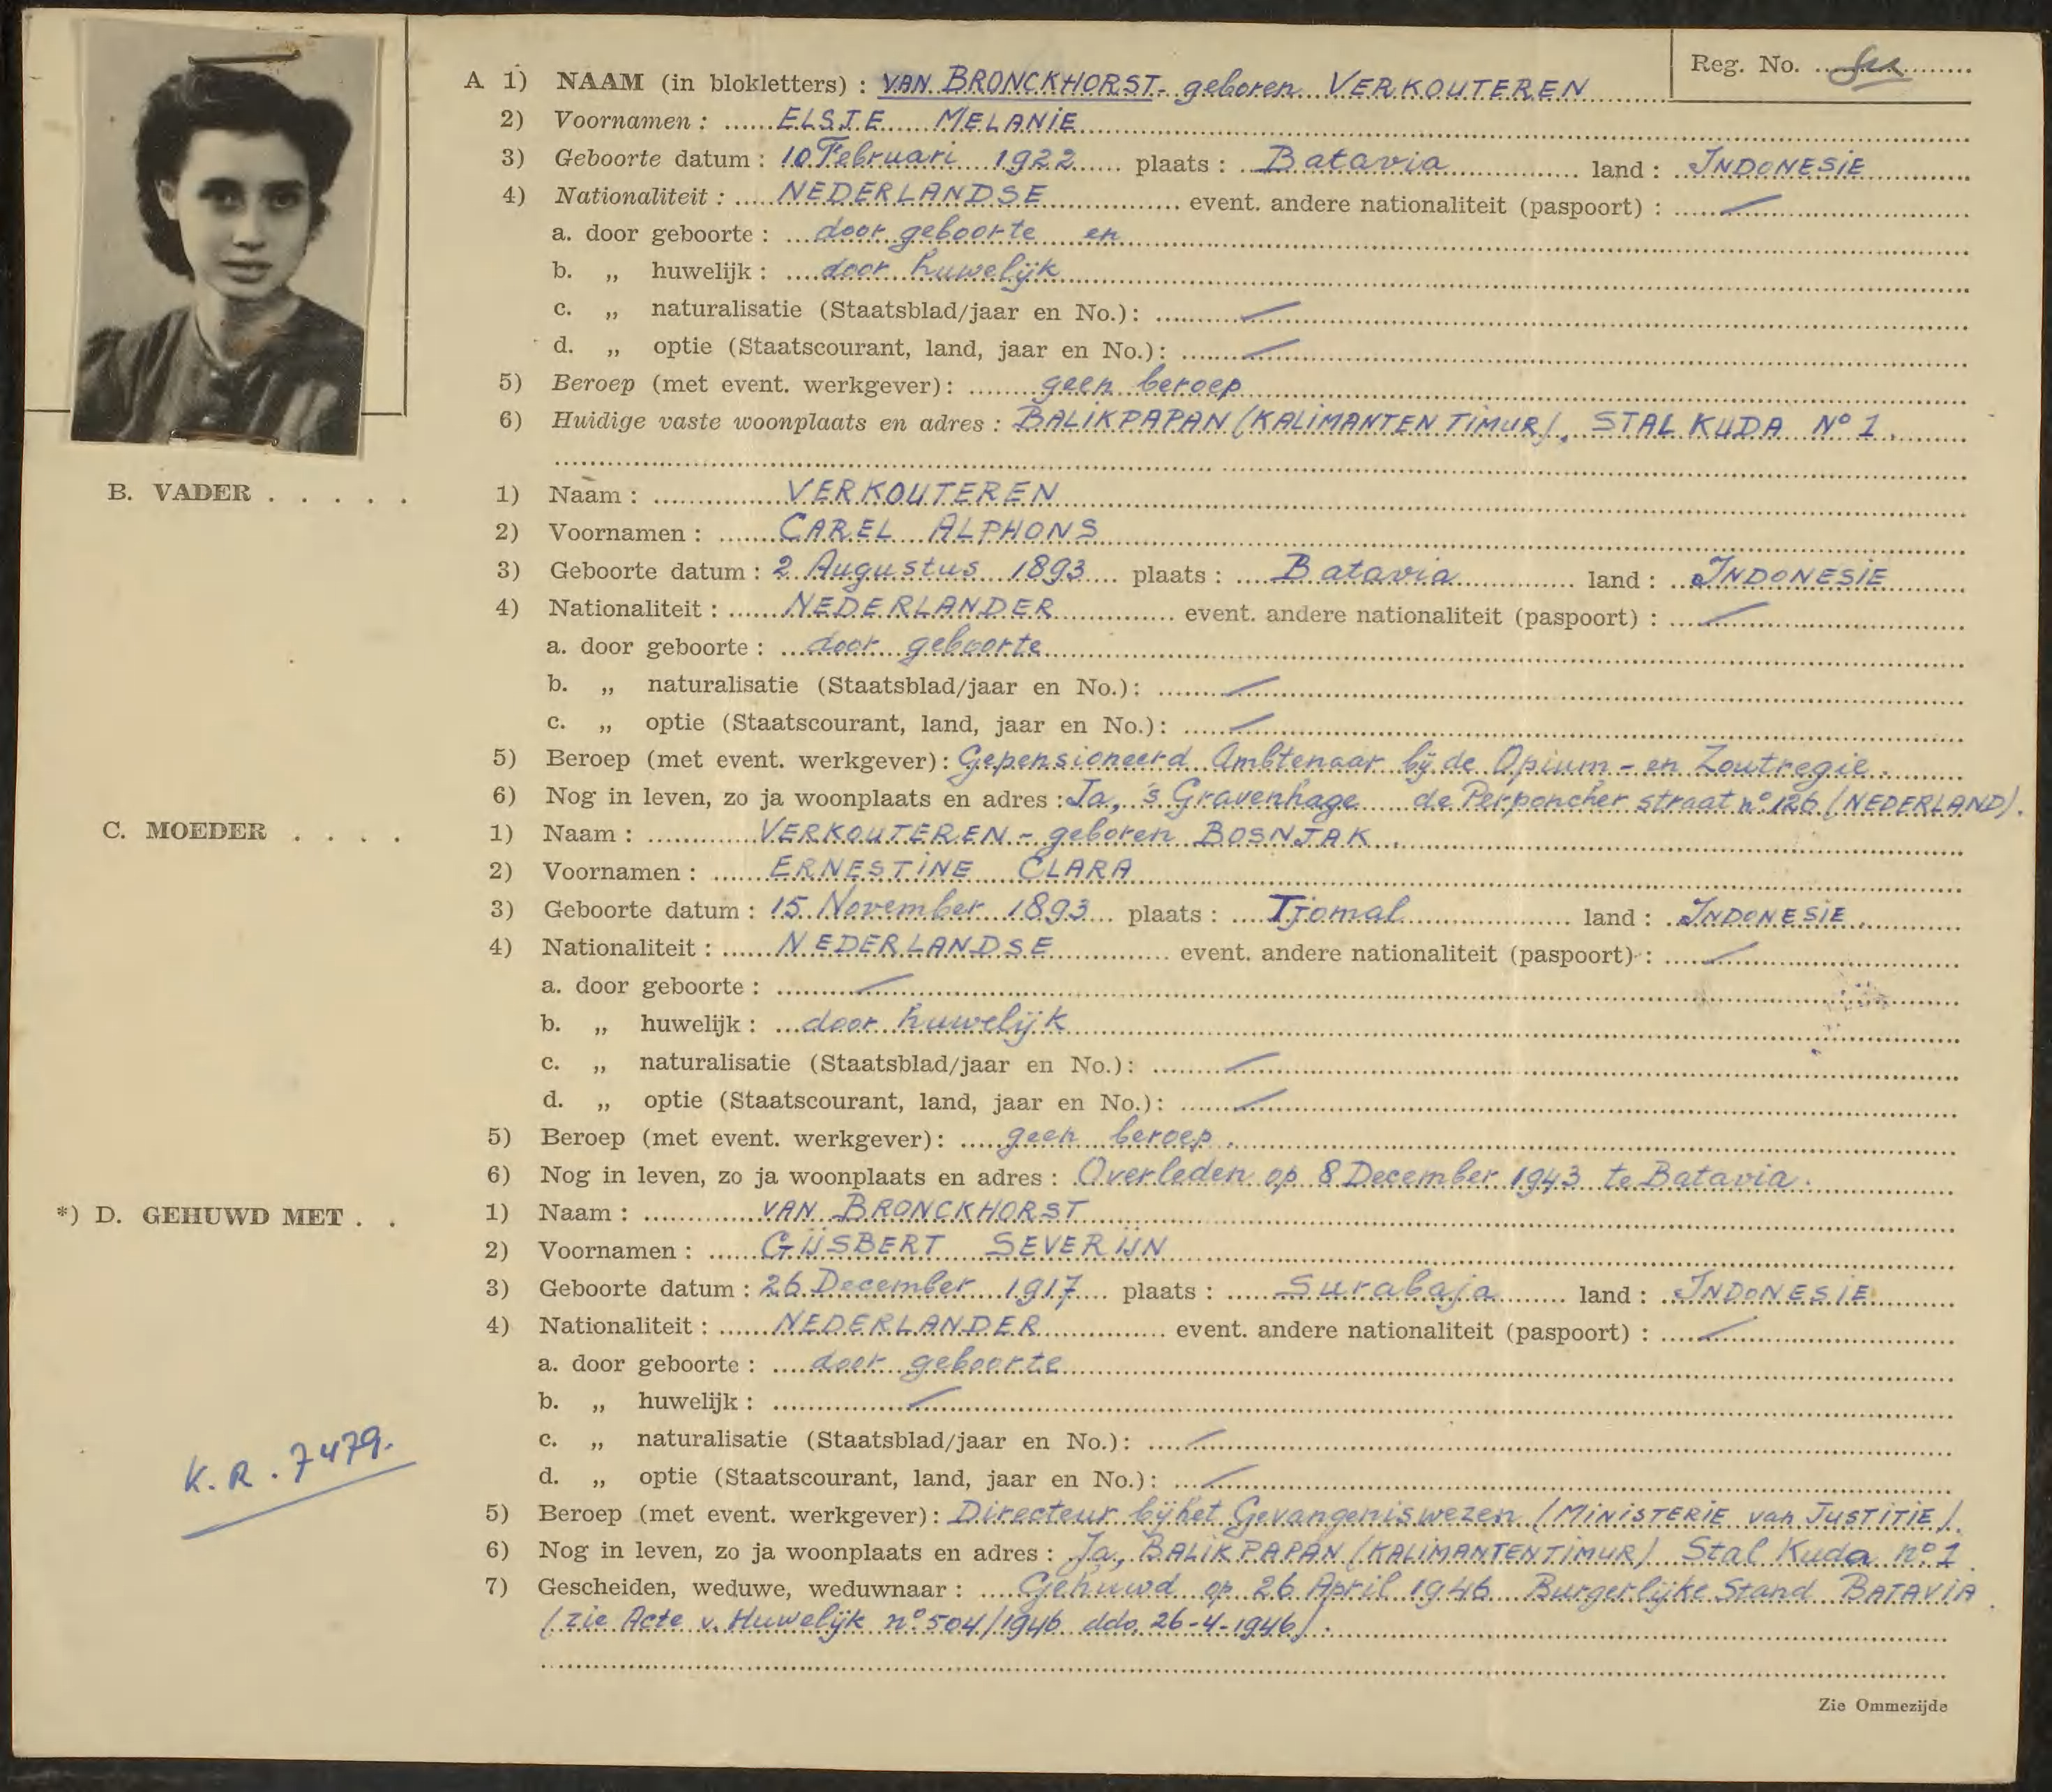 Reg. No.
A 1) NAAM (in blokletters) : VAN BRONCKHORST - geboren VERKOUTEREN
2) Voornamen : ELSJE MELANIE
3) Geboorte datum : 10 Februari 1922 plaats : Batavia land : INDONESIE
4) Nationaliteit : NEDERLANDSE event. andere nationaliteit (paspoort) : —
a. door geboorte : door geboorte en
b. „ huwelijk : door huwelijk
c. „ naturalisatie (Staatsblad/jaar en No.) : —
d. „ optie (Staatscourant, land, jaar en No.) : —
5) Beroep (met event. werkgever) : geen beroep
6) Huidige vaste woonplaats en adres : BALIKPAPAN (KALIMANTEN TIMUR), STAL KUDA No 1.
B. VADER . . . . .
1) Naam : VERKOUTEREN
2) Voornamen : CAREL ALPHONS
3) Geboorte datum : 2 Augustus 1893 plaats : Batavia land : INDONESIE
4) Nationaliteit : NEDERLANDER event. andere nationaliteit (paspoort) : —
a. door geboorte : door geboorte
b. „ naturalisatie (Staatsblad/jaar en No.) : —
c. „ optie (Staatscourant, land, jaar en No.) : —
5) Beroep (met event. werkgever) : Gepensioneerd Ambtenaar bij de Opium- en Zoutregie.
6) Nog in leven, zo ja woonplaats en adres : Ja, 's Gravenhage de Perponcher straat no 126 (NEDERLAND).
C. MOEDER . . . .
1) Naam : VERKOUTEREN - geboren BOSNJAK.
2) Voornamen : ERNESTINE CLARA
3) Geboorte datum : 15 November 1893 plaats : Tjomal land : INDONESIE.
4) Nationaliteit : NEDERLANDSE event. andere nationaliteit (paspoort) : —
a. door geboorte : —
b. „ huwelijk : door huwelijk
c. „ naturalisatie (Staatsblad/jaar en No.) : —
d. „ optie (Staatscourant, land, jaar en No.) : —
5) Beroep (met event. werkgever) : geen beroep.
6) Nog in leven, zo ja woonplaats en adres : Overleden op 8 December 1943 te Batavia.
*) D. GEHUWD MET . .
1) Naam : VAN BRONCKHORST
2) Voornamen : GIJSBERT SEVERIJN
3) Geboorte datum : 26 December 1917 plaats : Surabaja land : INDONESIE
4) Nationaliteit : NEDERLANDER event. andere nationaliteit (paspoort) : —
a. door geboorte : door geboorte
b. „ huwelijk : —
c. „ naturalisatie (Staatsblad/jaar en No.) : —
d. „ optie (Staatscourant, land, jaar en No.) : —
K.R. 7479.
5) Beroep (met event. werkgever) : Directeur bij het Gevangeniswezen (MINISTERIE van JUSTITIE).
6) Nog in leven, zo ja woonplaats en adres : Ja, BALIKPAPAN (KALIMANTEN TIMUR) Stal Kuda no 1.
7) Gescheiden, weduwe, weduwnaar : Gehuwd op 26 April 1946 Burgerlijke Stand BATAVIA.
(zie Acte v. Huwelijk no 504/1946 ddo. 26-4-1946).
Zie Ommezijde